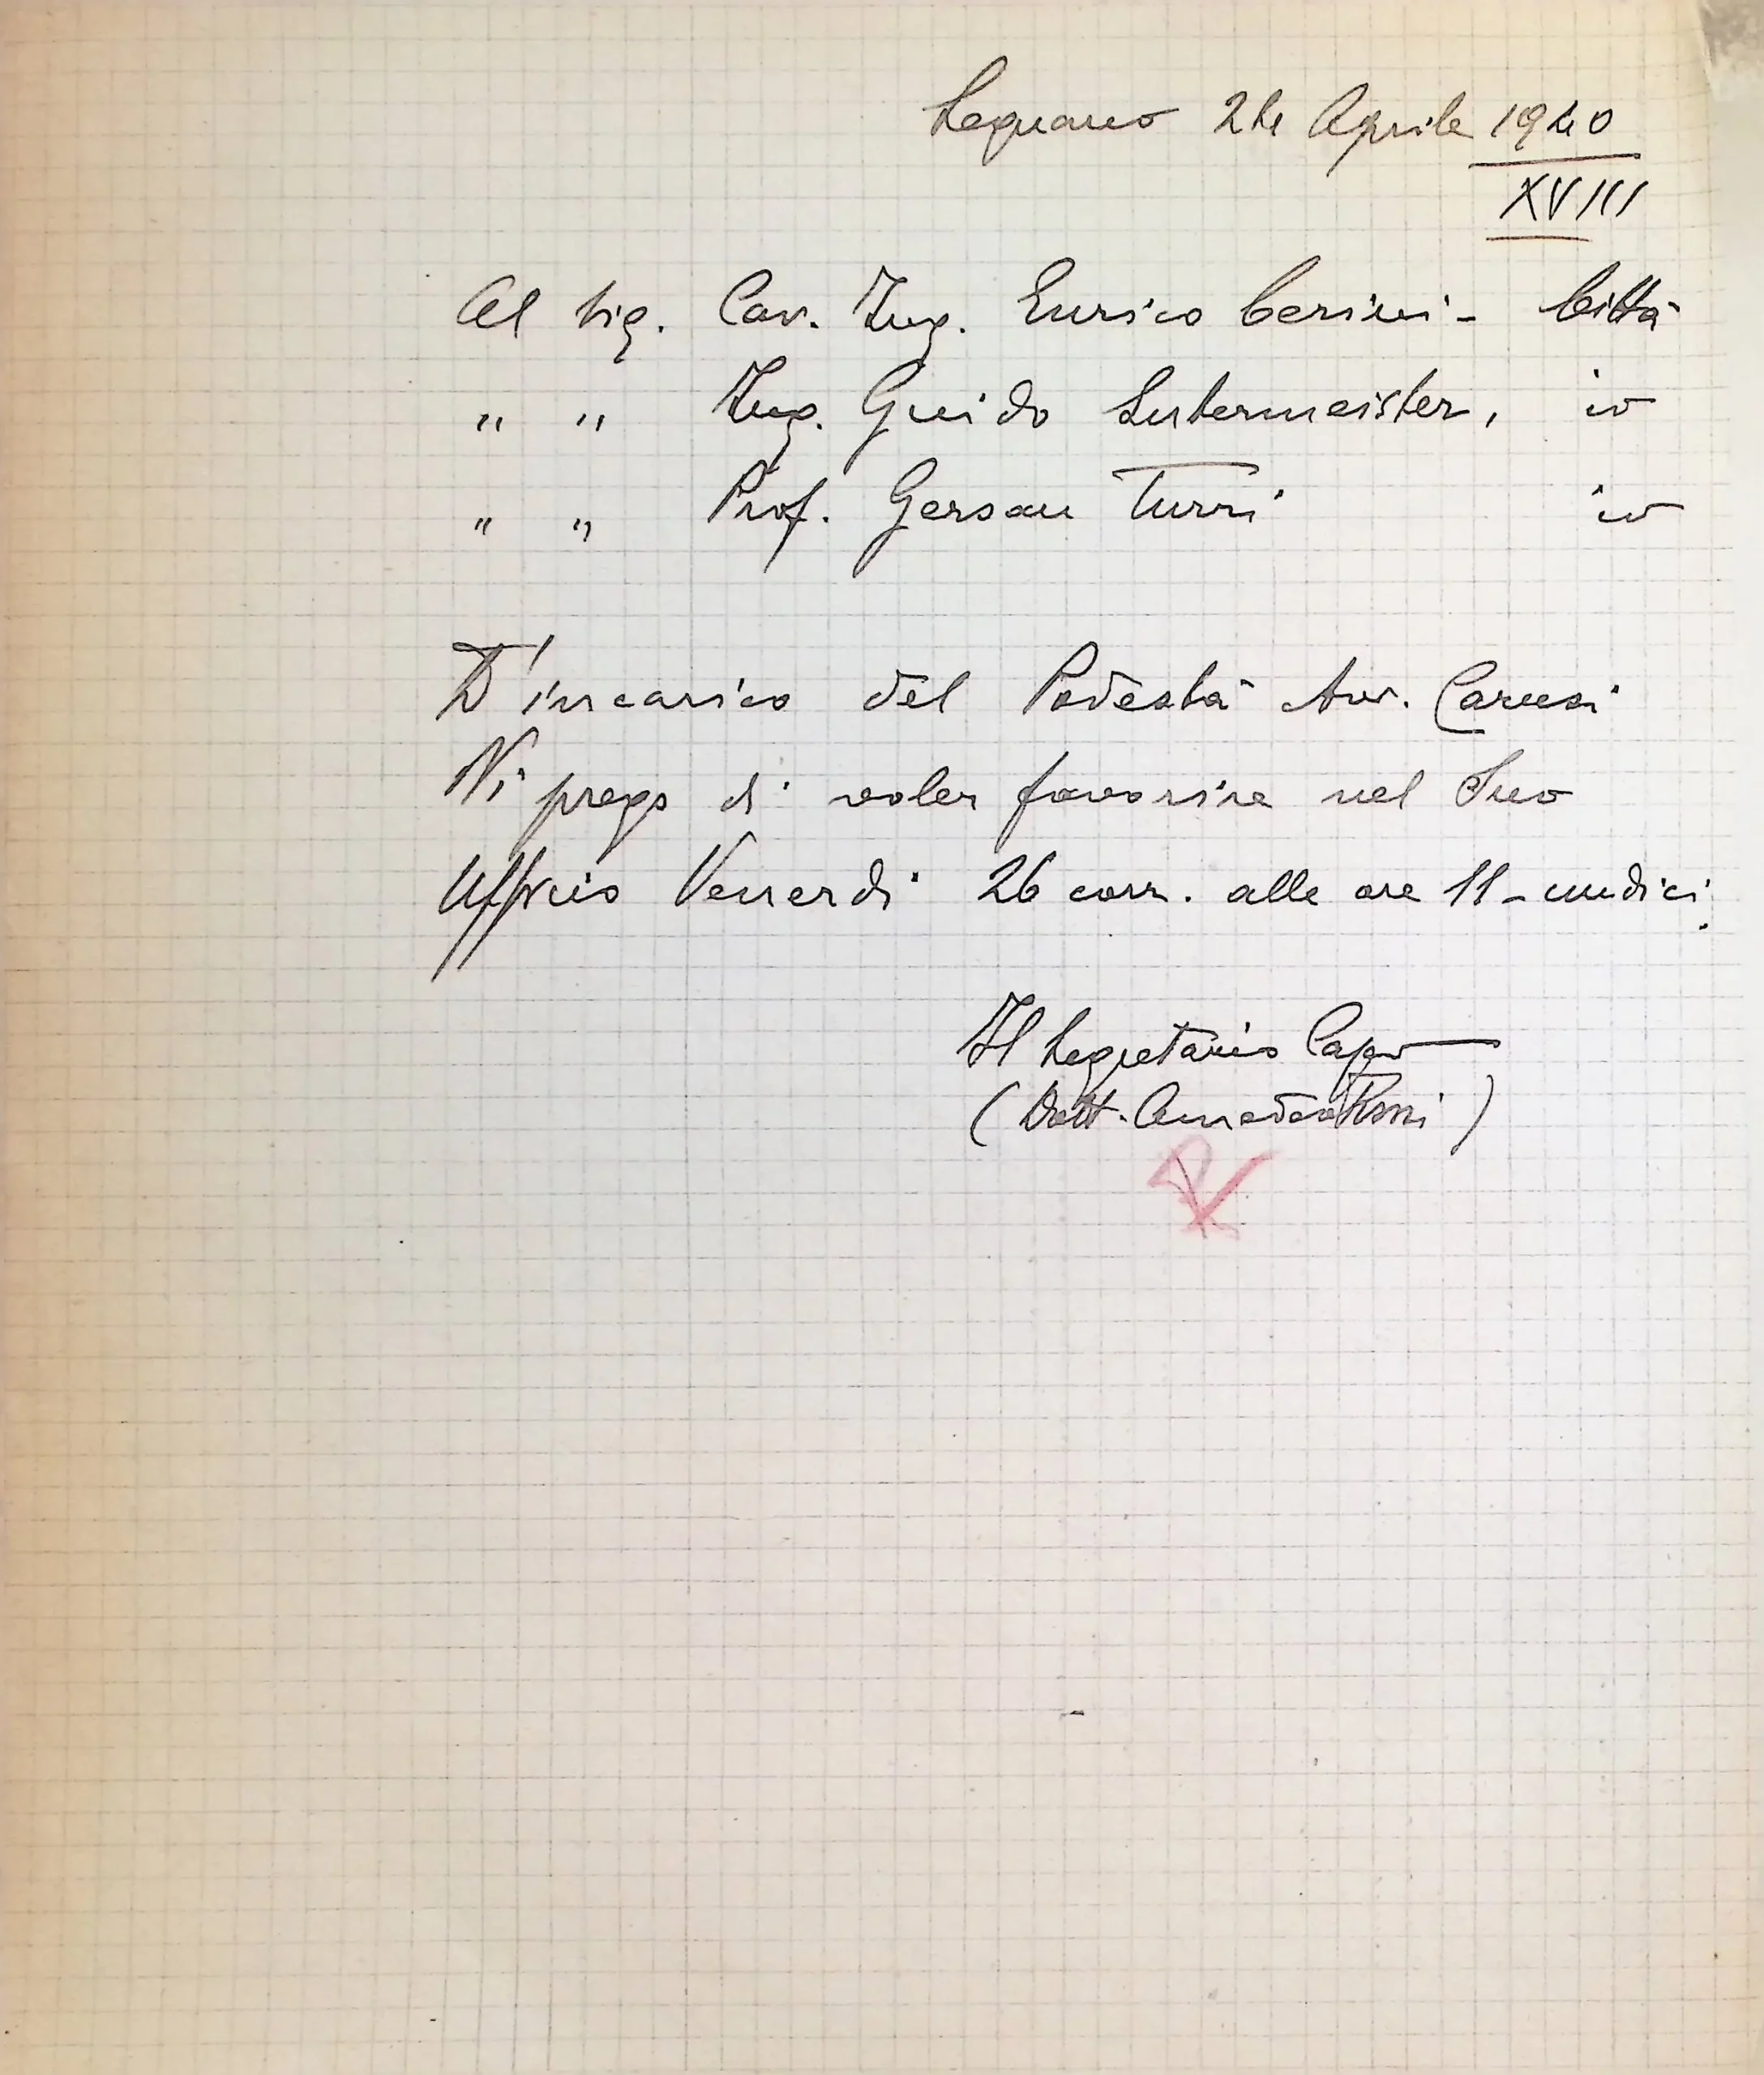 Legnano 24 Aprile 1940
XVIII
Al Sig. Cav. Ing. Enrico Cerini - Città
" " Ing. Guido Sutermeister, iv
" " Prof. Gersam Turri iv
D'incarico del Podestà Avv. Carusi
Vi prego di voler favorire nel Suo
Ufficio Venerdi 26 corr. alle ore 11 - undici.
Il Segretario Capo
(Dott. Amedeo